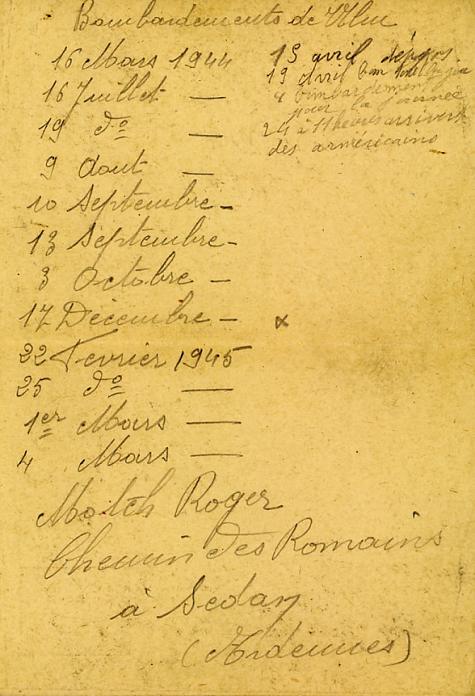 Bombardements de Ulm
16 Mars 1944
16 Juillet —
19 do —
9 Aout —
10 Septembre —
13 Septembre —
3 Octobre —
17 Décembre — x
22 Fevrier 1945
25 do —
1er Mars —
4 Mars —
15 avril
19 avril
4 bombardement
pour la journée
24 à 11 heures arrivers
des américains
Motch Roger
Chemin des Romains
à Sedan
(Ardennes)